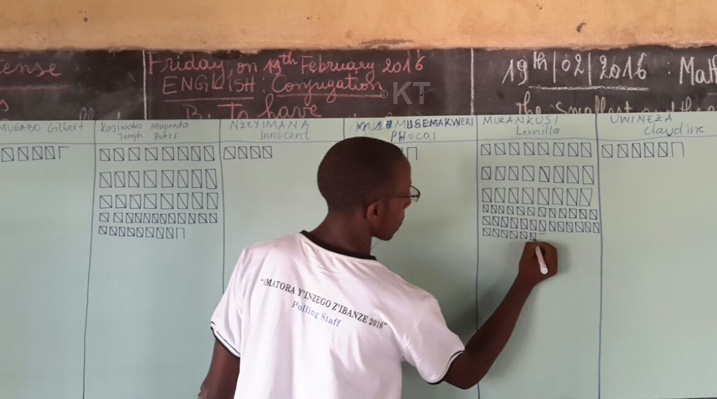 tense
Friday on 19th February 2016
ENGLISH: Conjugation
B. To have
KT
19th/02/2016: Math
The smallest and th
MUGABO Gilbert
Joseph
NIZEYIMANA
Innocent
USEMAKWERI
PHocas
MURANKUSI
Leonilla
UWINEZA
Claudine
MATORA Y'INZEGO Z'IBANZE 2016"
Polling Staff